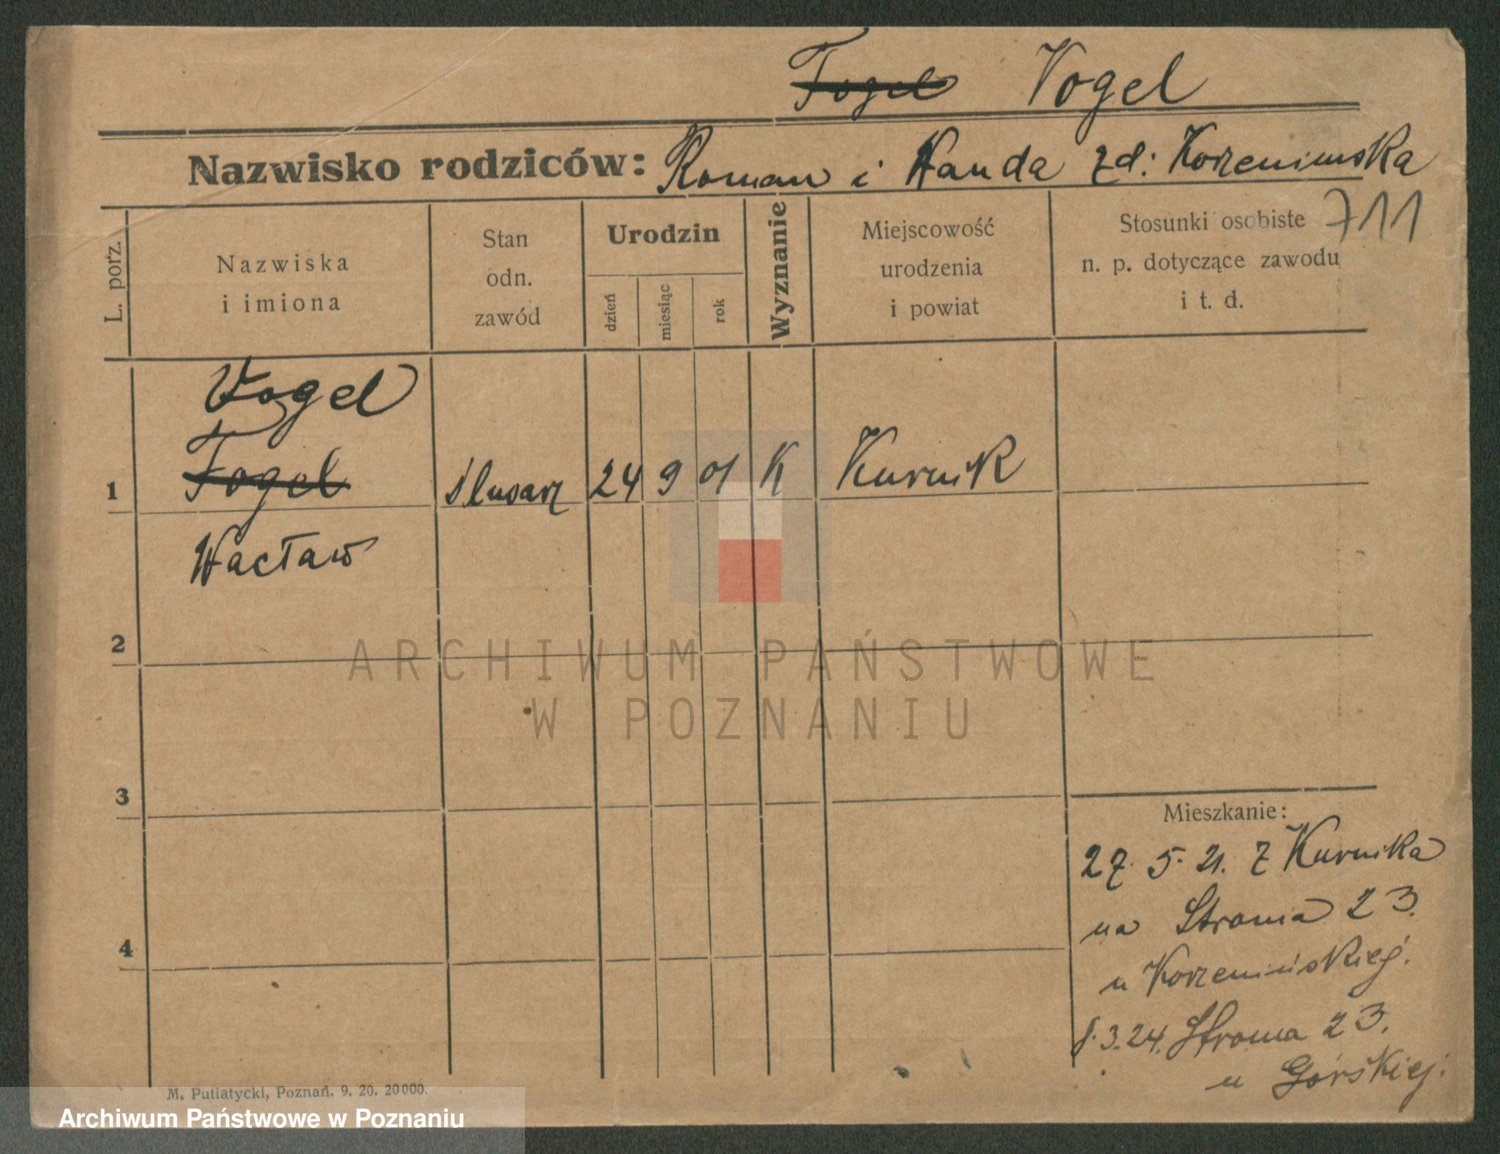 Fogel Vogel
Nazwisko rodziców: Roman i Wanda zd: Korzeniewska
711
L. porz.
Nazwiska
i imiona
Stan
odn.
zawód
Urodzin
dzień
miesiąc
rok
Wyznanie
Miejscowość
urodzenia
i powiat
Stosunki osobiste
n. p. dotyczące zawodu
i t. d.
Vogel
1 Fogel ślusarz 24 9 01 K Kurnik
Wacław
2
3
4
Mieszkanie:
27. 5. 21. z Kurnika
na Stroma 23.
u Korzeniewskiej.
3.24. Stroma 23.
u Górskiej.
M. Putiatycki, Poznań. 9. 20. 20000.
ARCHIWUM PAŃSTWOWE
W POZNANIU
Archiwum Państwowe w Poznaniu